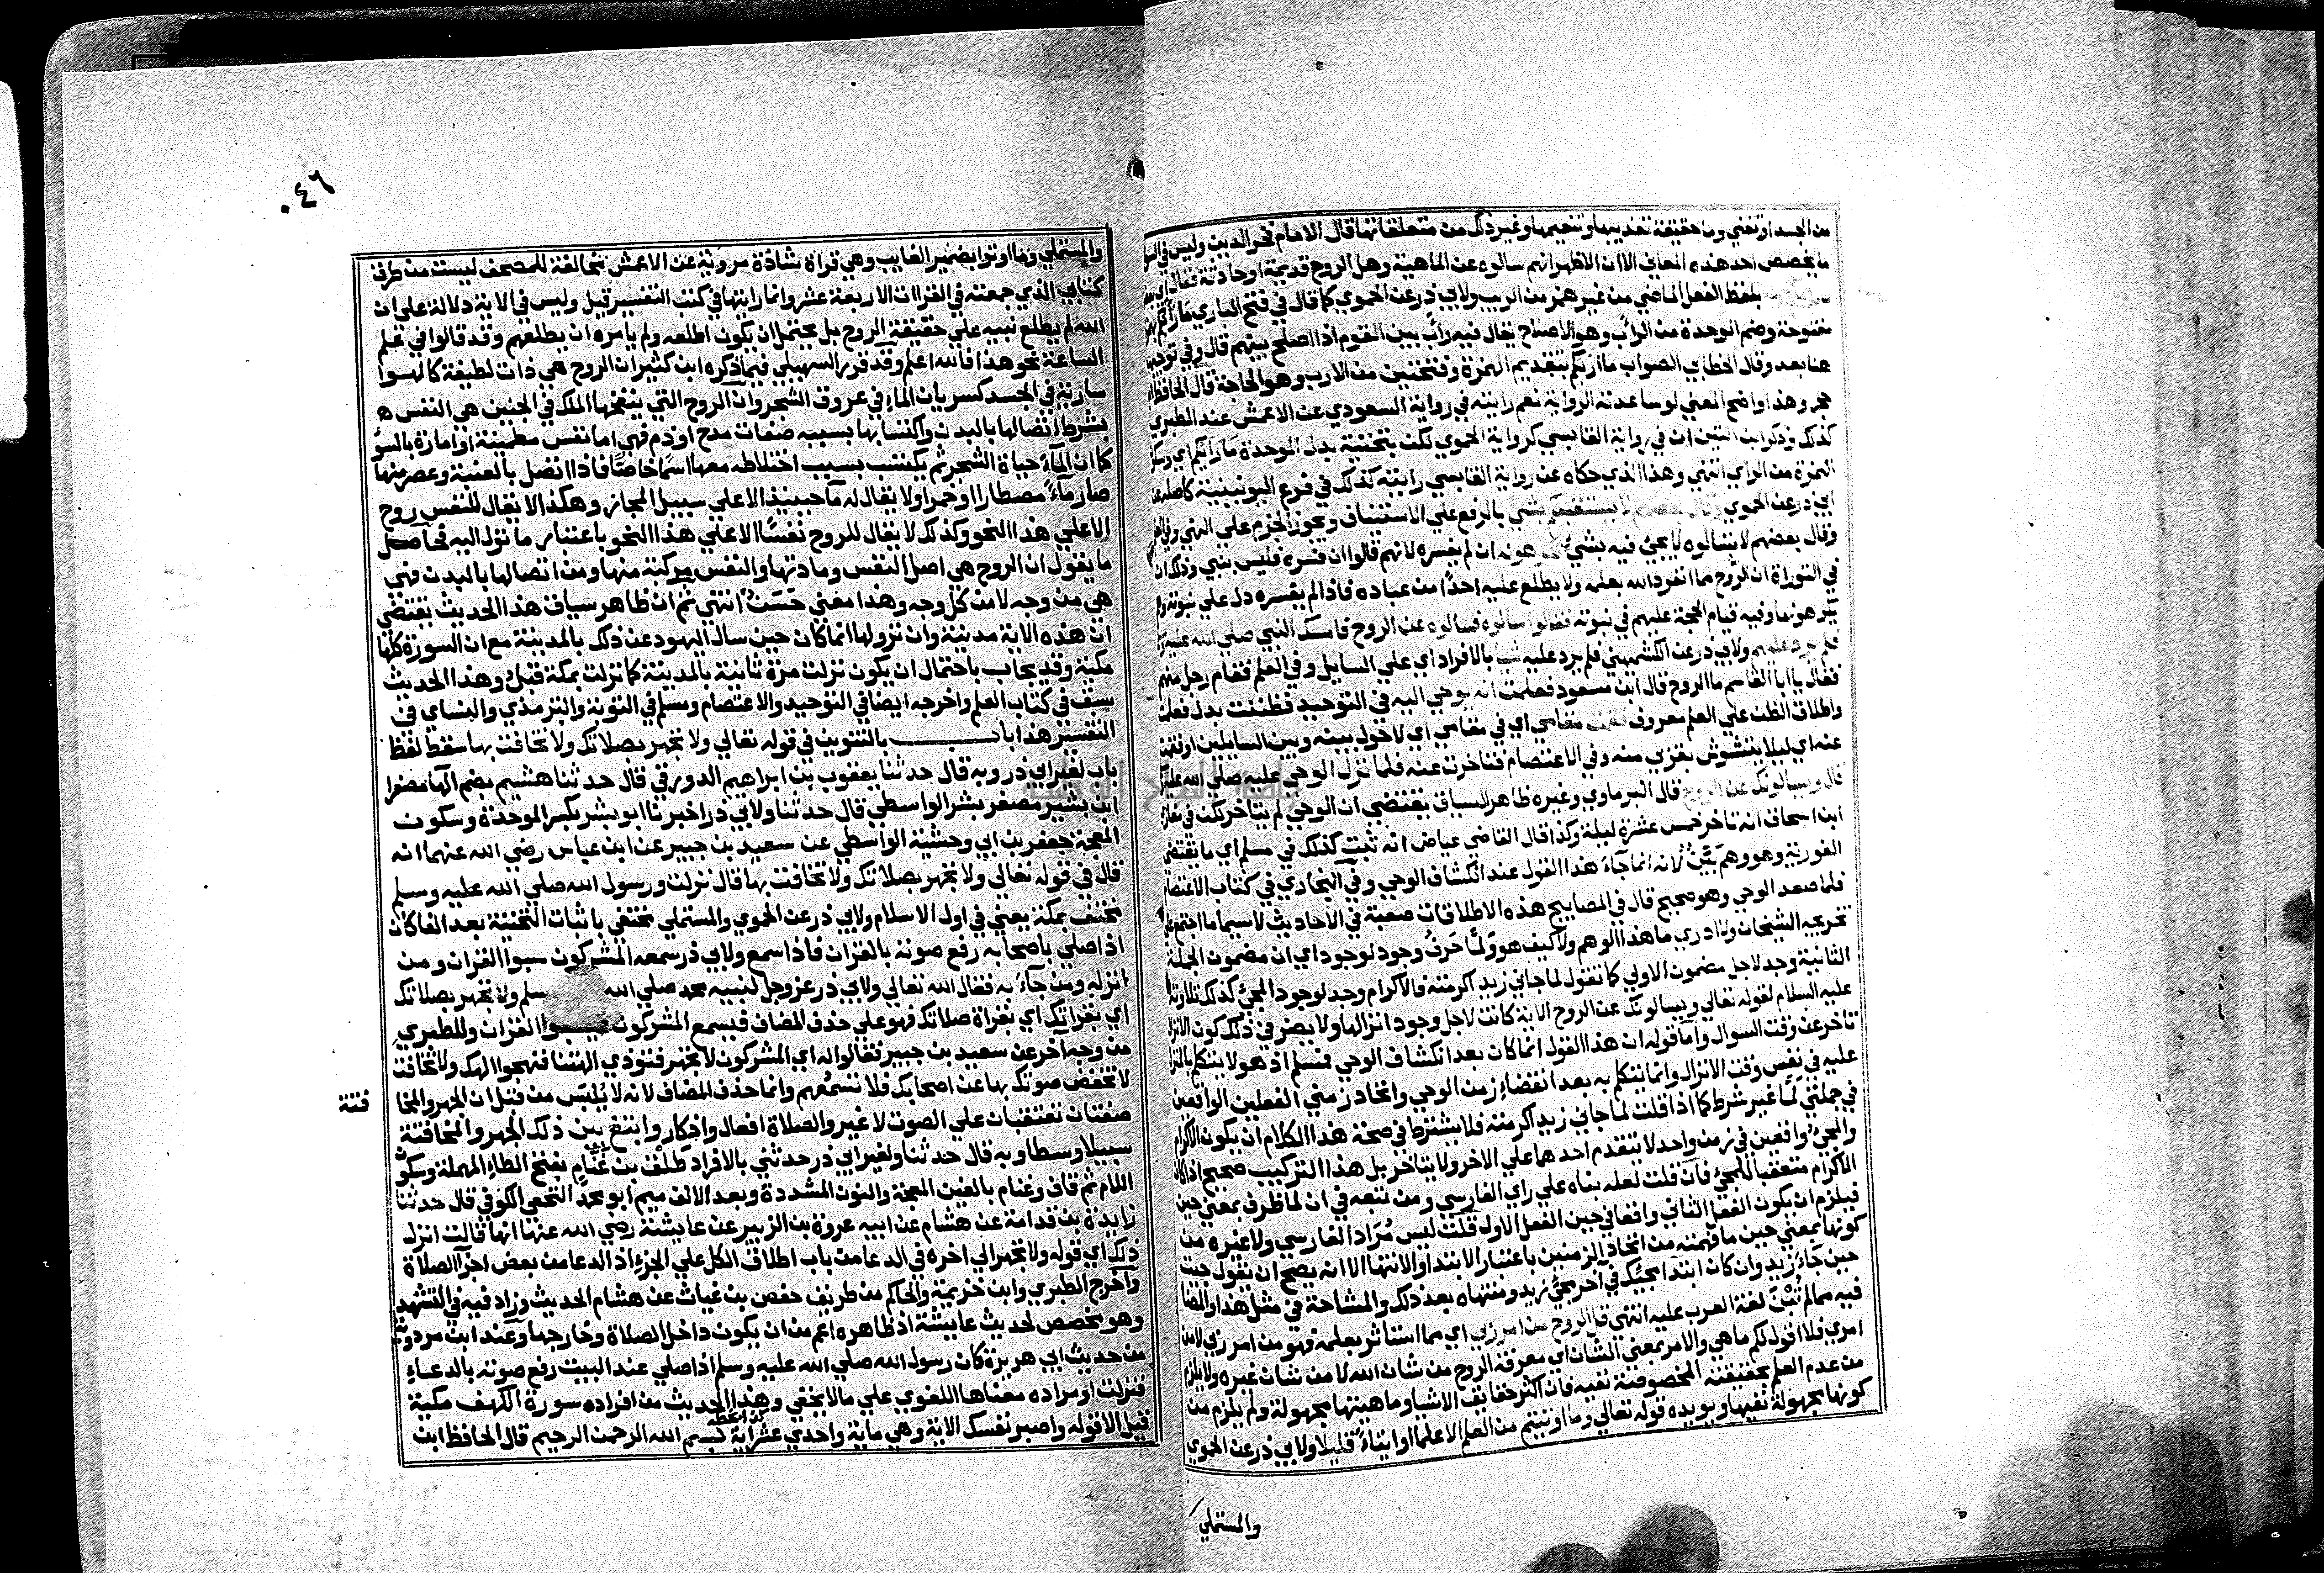 من الجسد او تفني وما حقيقة تعذيبها وتنعيمها وغير ذلك من متعلقاتها قال الامام فخر الدين وليس في السوال
ما يخصص احد هذه المعاني الا ان الاظهر انهم سالوه عن الماهية وهل الروح قديمة او حادثة فقال اي
بلفظ الفعل الماضي من غير همز من الريب ولابي ذر عن الحموي كما قال في فتح الباري ما رأبكم بهمزة
مفتوحة وضم الموحدة من الرأب وهو الاصلاح يقال فيه رأب بين القوم اذا اصلح بينهم قال وفي توجيهه
هنا بعد وقال الخطابي الصواب ما اربكم بتقديم الهمزة وفتحتين من الارب وهو الحاجة قال الحافظ ابن
حجر وهذا واضح المعني لو ساعدته الرواية نعم رايته في رواية المسعودي عن الاعمش عند الطبري
كذلك وذكر ابن التين ان في رواية القابسي كرواية الحموي لكن بتحتية بدل الموحدة ما رأيكم اي وسكون
الهمزة من الراي انتهي وهذا الذي حكاه عن رواية القابسي رايته كذلك في فرع اليونينية كاصله عن
ابي ذر عن الحموي وقال بعضهم لا يستقبلكم بشي بالرفع علي الاستئناف ويجوز الجزم علي النهي وفي العلم
وقال بعضهم لا تسالوه لا يجئ فيه بشئ تكرهونه ان لم يفسره لانهم قالوا ان فسره فليس بنبي وذلك ان
في التوراة ان الروح مما انفرد الله بعلمه ولا يطلع عليه احدا من عباده فاذا لم يفسره دل علي نبوته وهم
يكرهونها وفيه قيام الحجة عليهم في نبوته فقالوا سالوه فسالوه عن الروح فامسك النبي صلي الله عليه وسلم
فلم يرد عليهم ولابي ذر عن الكشميهني فلم يرد عليه شيا بالافراد اي علي السايل وفي العلم فقام رجل منهم
فقال يا ابا القاسم ما الروح قال ابن مسعود فعلمت انه يوحي اليه في التوحيد فظننت بدل فعلمت
واطلاق الظن علي العلم معروف فقمت مقامي اي في مقامي اي لاحول بينه وبين السايلين او فقمت
عنه اي ليلا يتشوش بقربي منه وفي الاعتصام فتاخرت عنه فلما نزل الوحي عليه صلي الله عليه
قال ويسالونك عن الروح قال البرماوي وغيره ظاهر السياق يقتضي ان الوحي لم يتاخر لكن في مغازي
ابن اسحاق انه تاخر خمس عشرة ليلة وكذا قال القاضي عياض انه ثبت كذلك في مسلم اي ما يقتضي
الفورية وهو وهم بيّن لانه انما جاء هذا القول عند انكشاف الوحي وفي البخاري في كتاب الاعتصام
فلما صعد الوحي وهو صحيح قال في المصابيح هذه الاطلاقات صعبة في الاحاديث لاسيما ما اجتمع علي
تخريجه الشيخان ولا ادري ما هذا الوهم ولا كيف هو ولما حرف وجود لوجود اي ان مضمون الجملة
الثانية وجد لاجل مضمون الاولي كما تقول لما جاني زيد اكرمته فالاكرام وجد لوجود المجئ كذلك تلاوته
عليه السلام لقوله تعالي ويسالونك عن الروح الاية كانت لاجل وجود انزالها ولا يضر في ذلك كون الانزال
تاخر عن وقت السوال واما قوله ان هذا القول انما كان بعد انكشاف الوحي فمسلم اذ هو لا يتكلم بالمنزل
عليه في نفس وقت الانزال وانما يتكلم به بعد انقضاء زمن الوحي واتحاد زمني الفعلين الواقعين
في جملتي لما غير شرط كما اذا قلت لما جاني زيد اكرمته فلا يشترط في صحة هذا الكلام ان يكون الاكرام
والمجئ واقعين في زمن واحد لا يتقدم احدهما علي الاخر ولا يتاخر بل هذا التركيب صحيح اذا كان
الاكرام متعقبا للمجئ فان قلت لعله بناه علي راي الفارسي ومن تبعه في ان لما ظرف بمعني حين
فيلزم ان يكون الفعل الثاني واقعا في حين الفعل الاول قلت ليس مراد الفارسي ولا غيره من
كونها بمعني حين ما فهمته من اتحاد الزمنين باعتبار الابتدا والانتها الا انه يصح ان يقول جيت
حين جاء زيد وان كان ابتدا مجيئك في آخر مجئ زيد ومنتهاه بعد ذلك والمشاحة في مثل هذا والمضايقة
فيه مما لم تُبن لغة العرب عليه انتهي قل الروح من امر ربي اي مما استاثر بعلمه فهو من امر ربي لا من
امري فلا اقول لكم ما هي والامر بمعني الشان اي معرفة الروح من شان الله لا من شان غيره ولا يلزم
من عدم العلم بحقيقته المخصوصة نفيه فان اكثر حقايق الاشيا وماهيتها مجهولة ولم يلزم من
كونها مجهولة نفيها ويويده قوله تعالي وما اوتيتم من العلم الا علما او ايتاء قليلا ولابي ذر عن الحموي
والمستملي
٠٤٦
والمستملي وما اوتوا بضمير الغايب وهي قراة شاذة مروية عن الاعمش مخالفة للمصحف ليست من طرق
كتابي الذي جمعته في القراات الاربعة عشر وانما رايتها في كتب التفسير قيل وليس في الاية دلالة علي ان
الله لم يطلع نبيه علي حقيقة الروح بل يحتمل ان يكون اطلعه ولم يامره ان يطلعهم وقد قالوا في علم
الساعة نحو هذا فالله اعلم وقد قرر السهيلي فيما ذكره ابن كثير ان الروح هي ذات لطيفة كالهوا
سارية في الجسد كسريان الماء في عروق الشجر وان الروح التي ينفخها الملك في الجنين هي النفس
بشرط اتصالها بالبدن واكتسابها بسببه صفات مدح او ذم فهي اما نفس مطمينة او امارة بالسوء
كما ان الماء حياة الشجر ثم يكتسب بسبب اختلاطه معها اسما خاصا فاذا اتصل بالعنبة وعصر منها
صار ماء مصطارا او خمرا ولا يقال له ماء حينيذ الا علي سبيل المجاز وهكذا لا يقال للنفس روح
الا علي هذا النحو وكذلك لا يقال للروح نفسا الا علي هذا النحو باعتبار ما تول اليه فحاصل
ما يقول ان الروح هي اصل النفس ومادتها والنفس مركبة منها ومن اتصالها بالبدن فهي
هي من وجه لا من كل وجه وهذا معني حسن انتهي ثم ان ظاهر سياق هذا الحديث يقتضي
ان هذه الاية مدنية وان نزولها انما كان حين سال اليهود عن ذلك بالمدينة مع ان السورة كلها
مكية وقد يجاب باحتمال ان يكون نزلت مرة ثانية بالمدينة كما نزلت بمكة قبل وهذا الحديث
سبق في كتاب العلم واخرجه ايضا في التوحيد والاعتصام ومسلم في التوبة والترمذي والنساي في
التفسير هذا باب بالتنوين في قوله تعالي ولا تجهر بصلاتك ولا تخافت بها سقط لفظ
باب لغير ابي ذر وبه قال حدثنا يعقوب بن ابراهيم الدورقي قال حدثنا هشيم بضم الها مصغرا
ابن بشير مصغر بشر الواسطي قال حدثنا ولابي ذر اخبرنا ابو بشر بكسر الموحدة وسكون
المعجمة جعفر بن ابي وحشية الواسطي عن سعيد بن جبير عن ابن عباس رضي الله عنهما انه
قال في قوله تعالي ولا تجهر بصلاتك ولا تخافت بها قال نزلت ورسول الله صلي الله عليه وسلم
مختف بمكة يعني في اول الاسلام ولابي ذر عن الحموي والمستملي مختفي باثبات التحتية بعد الفا كان
اذا صلي باصحابه رفع صوته بالقران فاذا سمع ولابي ذر سمعه المشركون سبوا القران ومن
انزله ومن جاء به فقال الله تعالي ولابي ذر عز وجل لنبيه محمد صلي الله وسلم ولا تجهر بصلاتك
اي بقراتك اي بقراة صلاتك فهو علي حذف المضاف فيسمع المشركون فيسبوا القران وللطبري
من وجه آخر عن سعيد بن جبير فقالوا له اي المشركون لا تجهر فتوذي الهتنا فنهجوا الهك ولا تخافت
لا تخفض صوتك بها عن اصحابك فلا تسمعهم وانما حذف المضاف لانه لا يلبس من قبل ان الجهر والمخا
فتة
صفتان تعتقبان علي الصوت لا غير والصلاة افعال واذكار وابتغ بين ذلك الجهر والمخافتة
سبيلا وسطا وبه قال حدثنا ولغير ابي ذر حدثني بالافراد طلق بن غنام بفتح الطاء المهملة وسكون
اللام ثم قاف وغنام بالغين المعجمة والنون المشددة وبعد الالف ميم ابو محمد النخعي الكوفي قال حدثنا
زايدة بن قدامة عن هشام عن ابيه عروة بن الزبير عن عايشة رضي الله عنها انها قالت انزل
ذلك اي قوله ولا تجهر الي اخره في الدعا من باب اطلاق الكل علي الجزء اذ الدعا من بعض اجزآ الصلاة
واخرج الطبري وابن خزيمة والحاكم من طريق حفص بن غياث عن هشام الحديث وزاد فيه في التشهد
وهو مخصص لحديث عايشة اذ ظاهره اعم من ان يكون داخل الصلاة وخارجها وعند ابن مردويه
من حديث ابي هريرة كان رسول الله صلي الله عليه وسلم اذا صلي عند البيت رفع صوته بالدعاء
فنزلت او مراده معناها اللغوي علي ما لا يخفي وهذا الحديث من افراده سورة الكهف مكية
قيل الا قوله واصبر نفسك الاية وهي ماية واحدي عشراية بسم الله الرحمن الرحيم قال الحافظ ابن